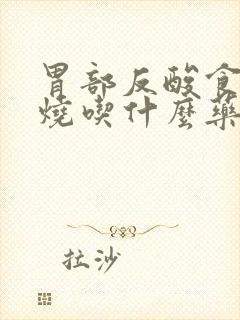 胃部反酸食
燒喫什麼藥
拉沙